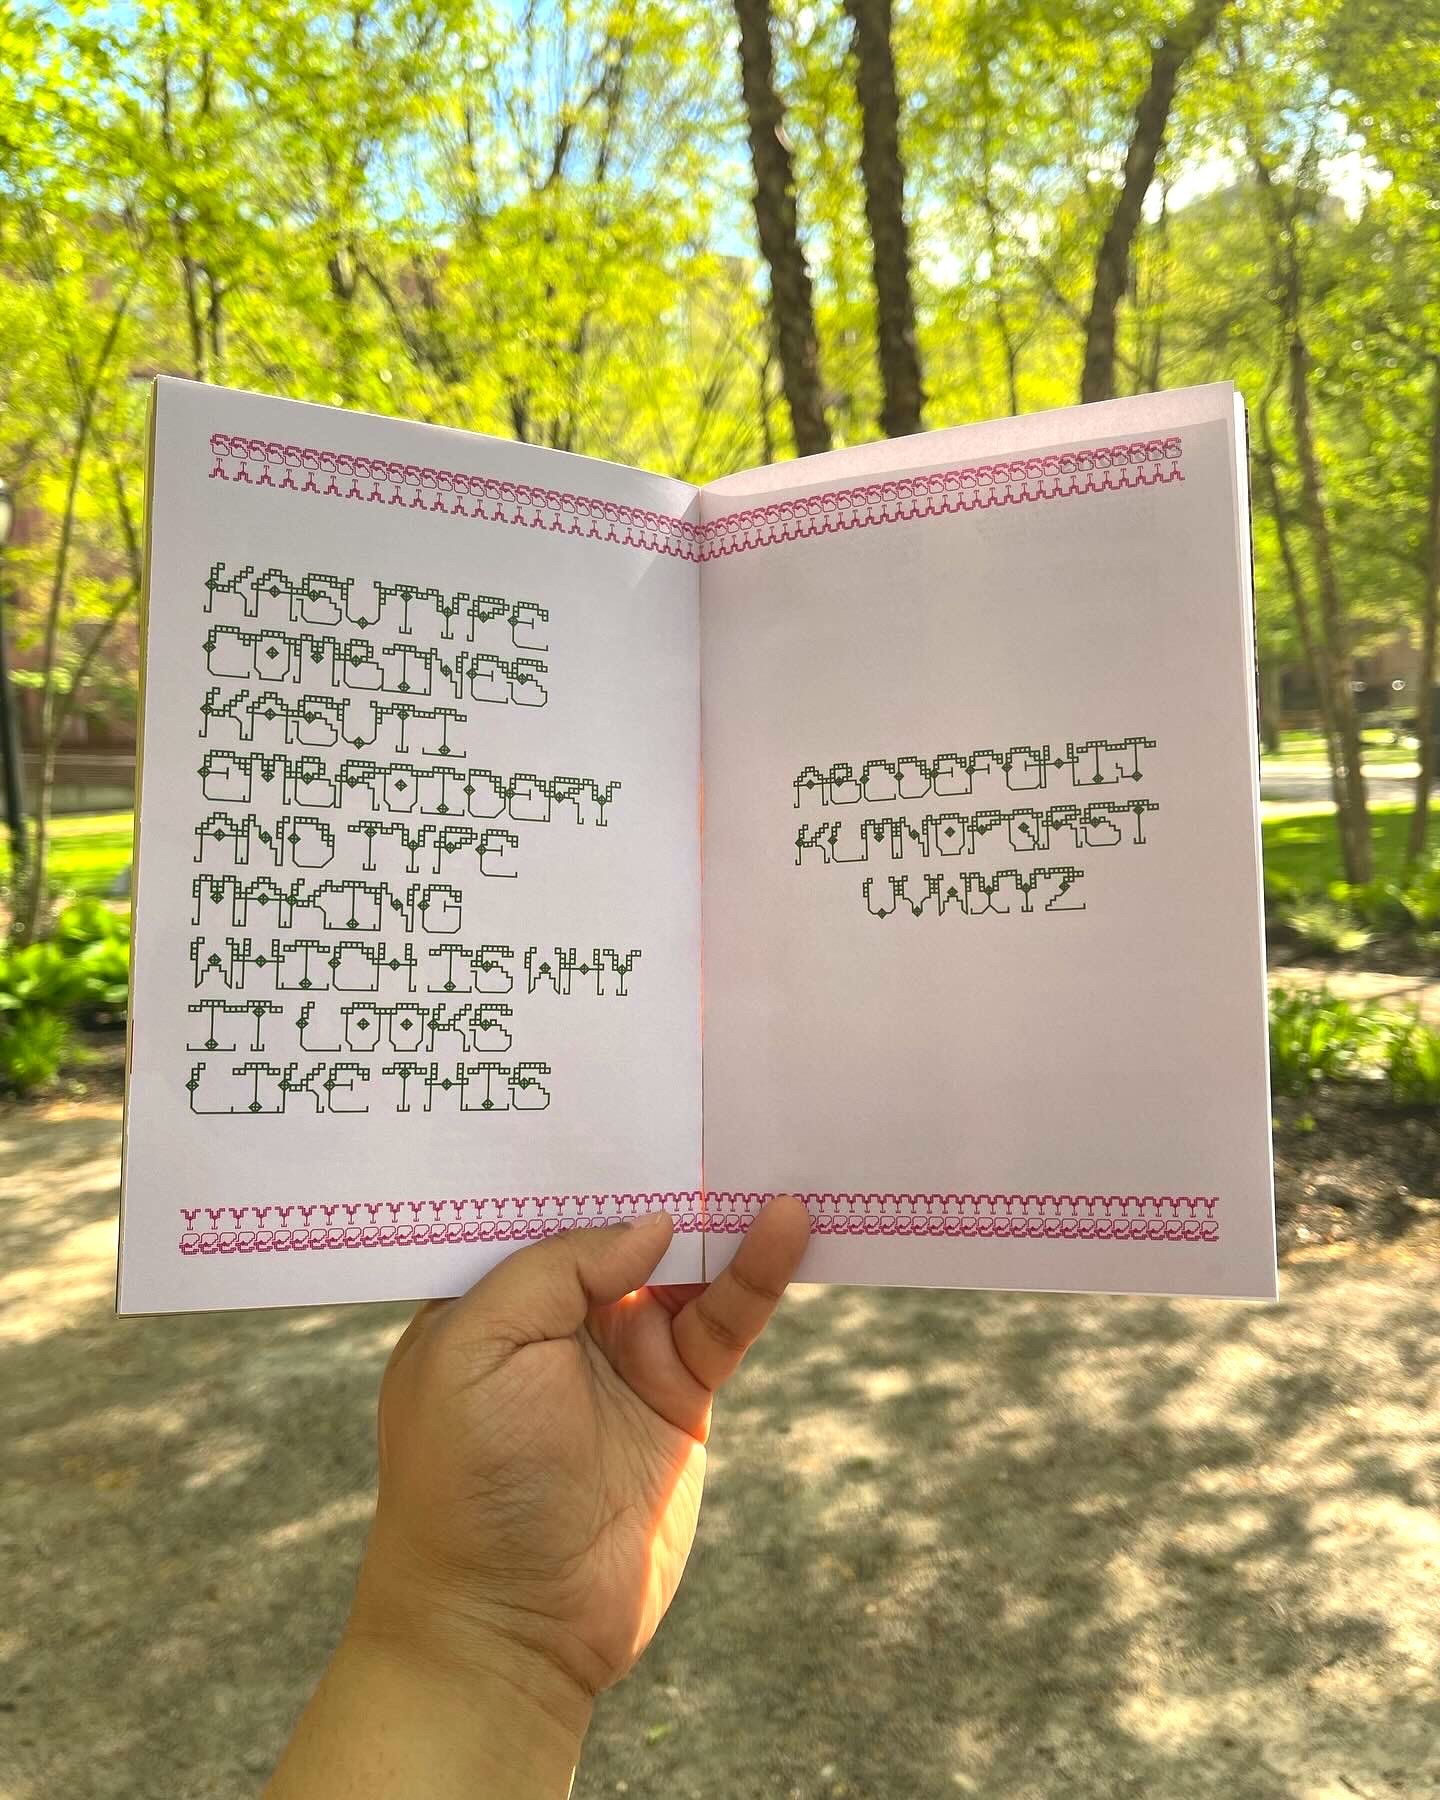 KASUTYPE
COMBINES
KASUTI
EMBROIDERY
AND TYPE
MAKING
WHICH IS WHY
IT LOOKS
LIKE THIS
ABCDEFGHIJ
KLMNOPQRST
UVWXYZ